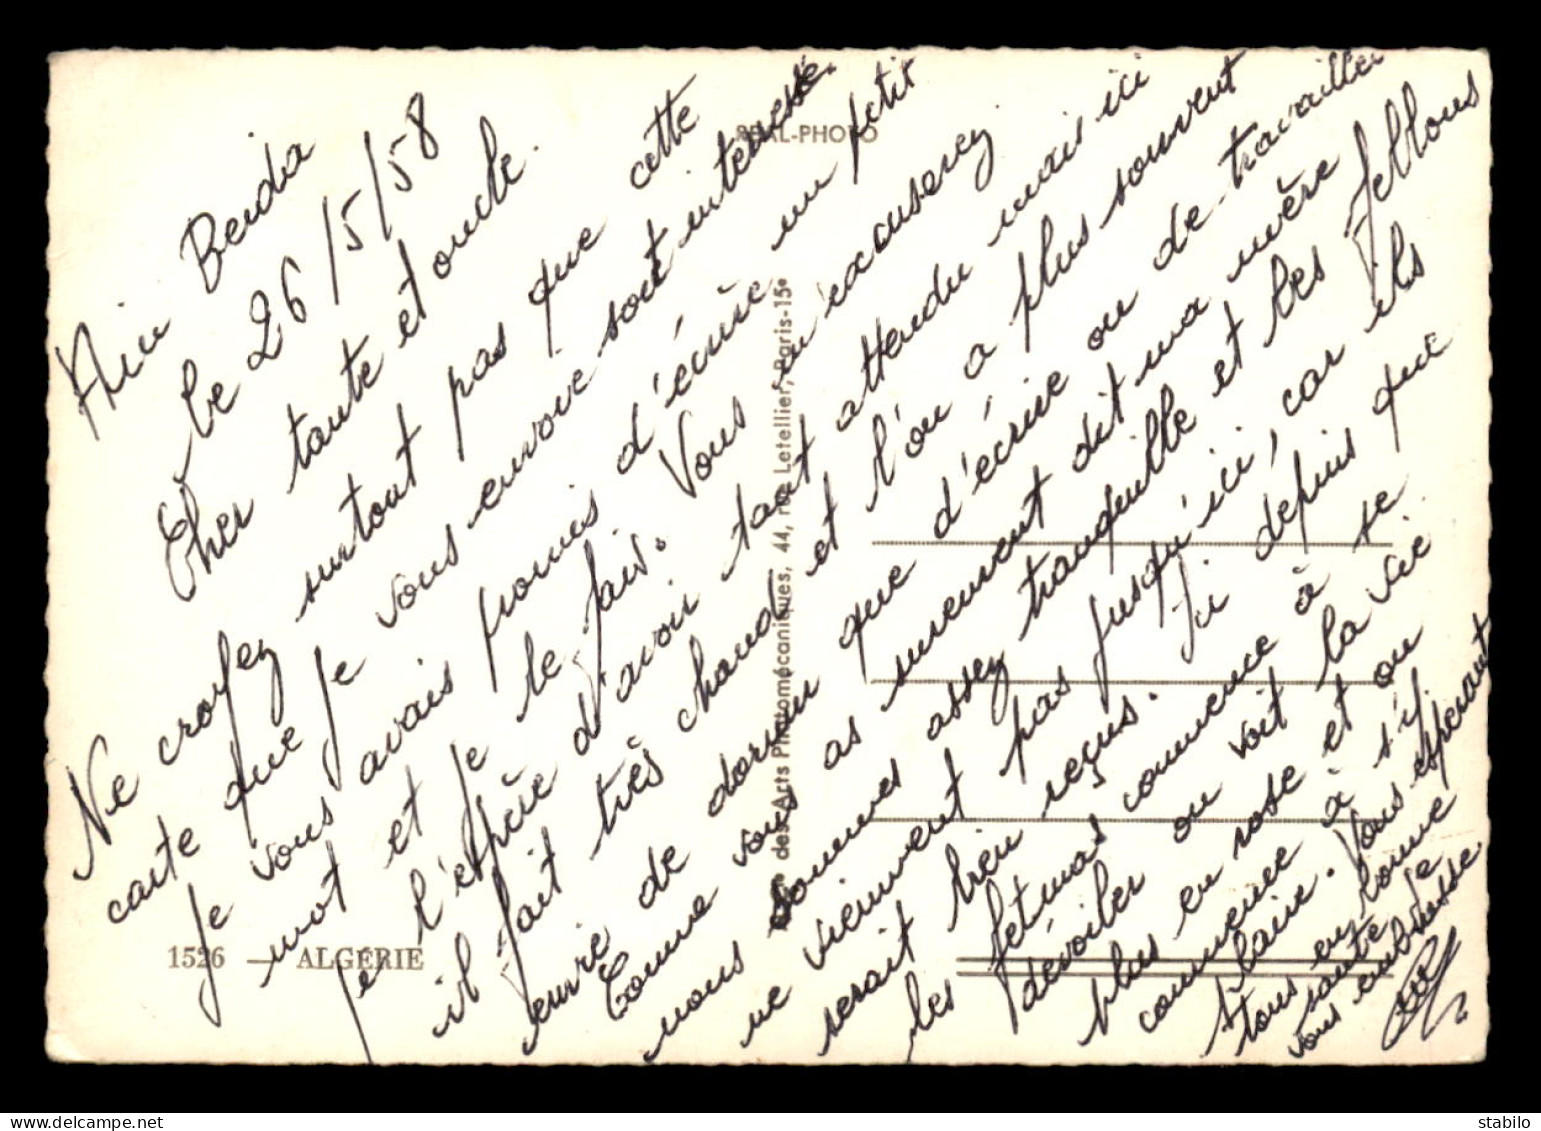 Ain Beida
le 26/5/58
Cher tante et oncle.
Ne croyez surtout pas que cette
carte que je vous envoie soit interessé.
Je vous avais promis d'écrire un petit
mot et je le fais. Vous m'éxcuserez
je l'espère d'avoir tant attendu mais ici
il fait très chaud et l'on a plus souvent
envie de dormir que d'écrire ou de travailler
Comme vous as surement dit ma mère
nous sommes assez tranquille et les fellous
ne viennent pas jusqu'ici, car ils
serait bien reçus. Ji depuis que
les fetmas commence à se
dévoiler on voit la vie
plus en rose et on
commence à s'y
plaire. Vous esperant
tous en bonne
santé je
vous embrasse
REAL-PHOTO
des Arts Photomécaniques, 44, rue Letellier, Paris-15e
1526 — ALGÉRIE
stabylo